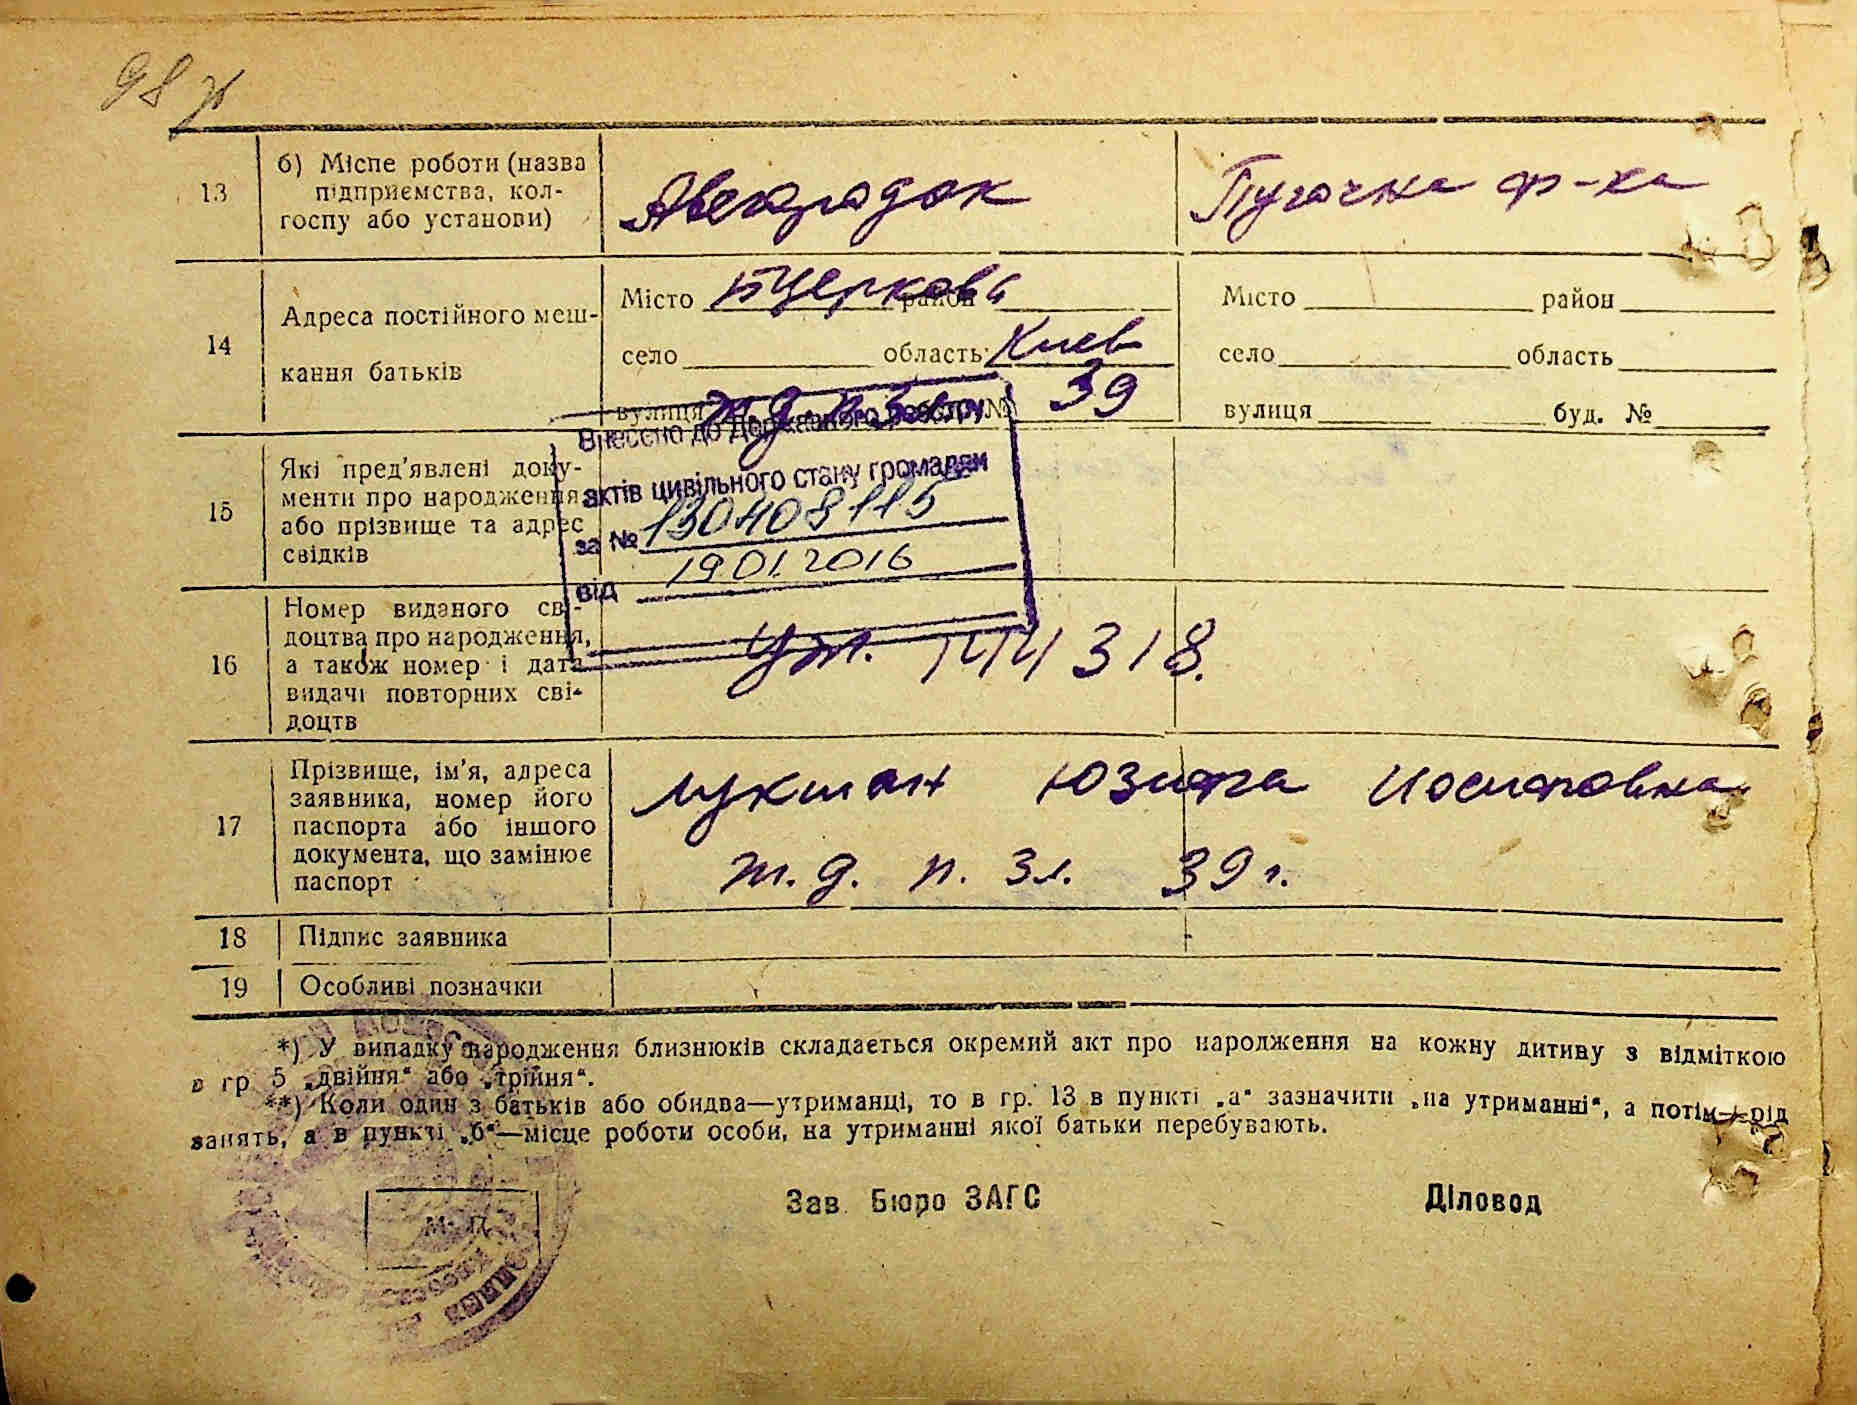 98
13
б) Місце роботи (назва
підприємства, кол-
госпу або установи)
ф-ка
14
Адреса постійного меш-
кання батьків
Місто Бцеркова район
село область Киев
вулиця № 39
Місто район
село область
вулиця буд. №
Внесено до Державного реєстру
актів цивільного стану громадян
за № 130408115
від 19.01.2016
15
Які пред'явлені доку-
менти про народження
або прізвище та адрес
свідків
16
Номер виданого сві-
доцтва про народження,
а також номер і дата
видачі повторних сві-
доцтв
318.
17
Прізвище, ім'я, адреса
заявника, номер його
паспорта або іншого
документа, що замінює
паспорт
Лукман Юзифа Иосиповна
ж.д. п. Зл. 39 г.
18
Підпис заявника
19
Особливі позначки
*) У випадку народження близнюків складається окремий акт про народження на кожну дитину з відміткою
в гр 5 „двійня“ або „трійня“.
**) Коли один з батьків або обидва—утриманці, то в гр. 13 в пункті „а“ зазначити „на утриманні“, а потім—рід
занять, а в пункті „б“—місце роботи особи, на утриманні якої батьки перебувають.
М. П.
Зав. Бюро ЗАГС
Діловод